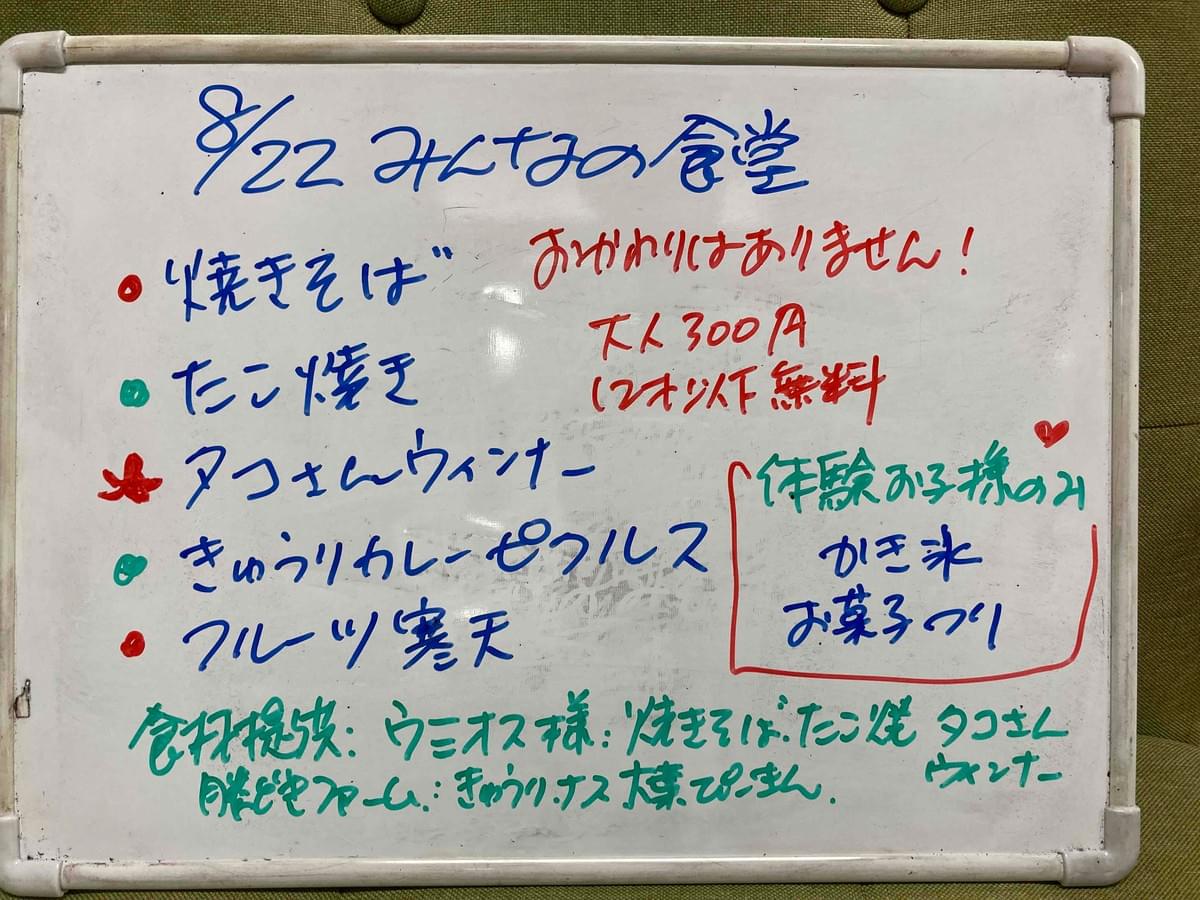 8/22 みんなの食堂
焼きそば
おかわりはありません!
大人300円
12才以下無料
たこ焼き
タコさんウィンナー
きゅうりカレーピクルス
フルーツ寒天
体験お子様のみ
かき氷
お菓子つり
食材提供: ウニオス様: 焼きそば、たこ焼 タコさん
ウィンナー
勝どきファーム: きゅうり、ナス 大葉 ぴーまん.